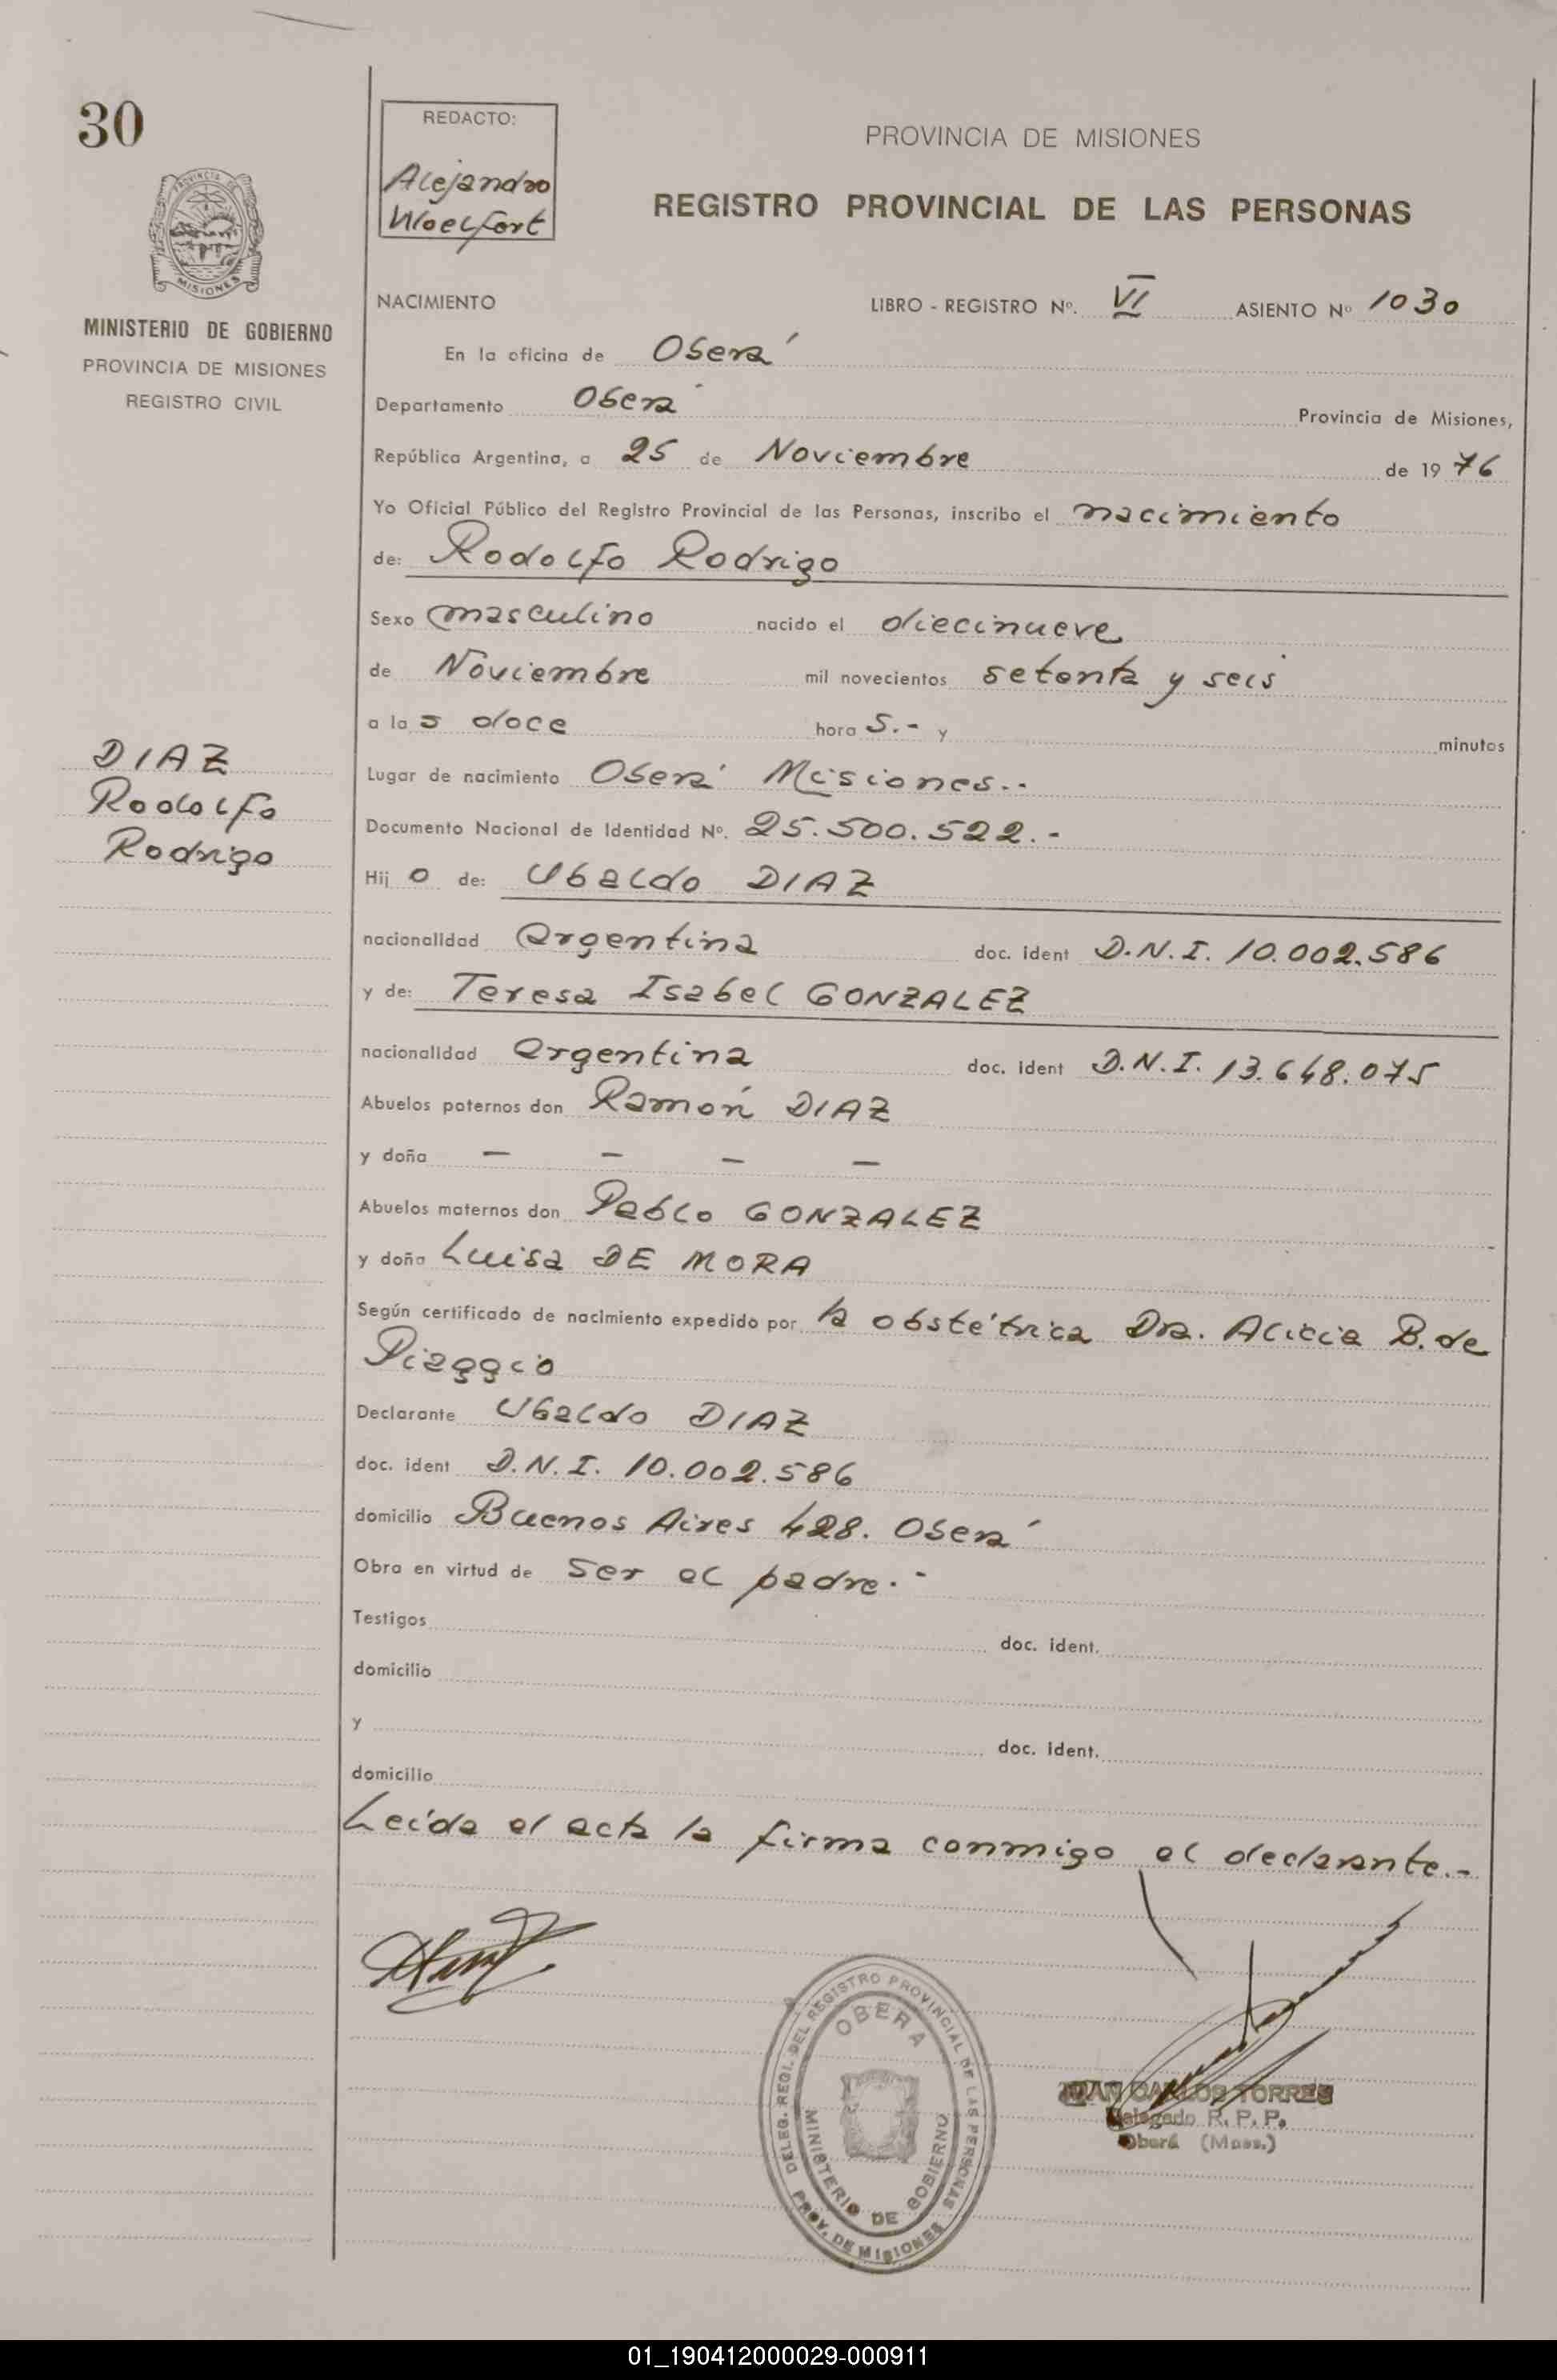 30
REDACTO:
Alejandro
Woelfort
PROVINCIA DE MISIONES
REGISTRO PROVINCIAL DE LAS PERSONAS
MISIONES
MINISTERIO DE GOBIERNO
PROVINCIA DE MISIONES
REGISTRO CIVIL
NACIMIENTO LIBRO - REGISTRO Nº. VI ASIENTO Nº 1030
En la oficina de Oberá
Departamento Oberá Provincia de Misiones,
República Argentina, a 25 de Noviembre de 1976
Yo Oficial Público del Registro Provincial de las Personas, inscribo el nacimiento
de: Rodolfo Rodrigo
Sexo masculino nacido el diecinueve
de Noviembre mil novecientos setenta y seis
a las doce horas.- y minutos
Lugar de nacimiento Oberá Misiones.-
Documento Nacional de Identidad Nº. 25.500.522.-
Hijo de: Ubaldo DIAZ
nacionalidad Argentina doc. ident D.N.I. 10.002.586
y de: Teresa Isabel GONZALEZ
nacionalidad Argentina doc. ident D.N.I. 13.648.075
Abuelos paternos don Ramón DIAZ
y doña — — — —
Abuelos maternos don Pablo GONZALEZ
y doña Luisa DE MORA
Según certificado de nacimiento expedido por la obstétrica Dra. Alicia B. de
Piaggio
Declarante Ubaldo DIAZ
doc. ident D.N.I. 10.002.586
domicilio Buenos Aires 428. Oberá
Obra en virtud de ser el padre.-
Testigos doc. ident.
domicilio
y doc. ident.
domicilio
Leída el acta la firma conmigo el declarante.-
DIAZ
Rodolfo
Rodrigo
DELEG. REGI. DEL REGISTRO PROVINCIAL DE LAS PERSONAS
OBERA
MINISTERIO DE GOBIERNO
PROV. DE MISIONES
JUAN CARLOS TORRES
Delegado R. P. P.
Oberá (Mnes.)
01_190412000029-000911